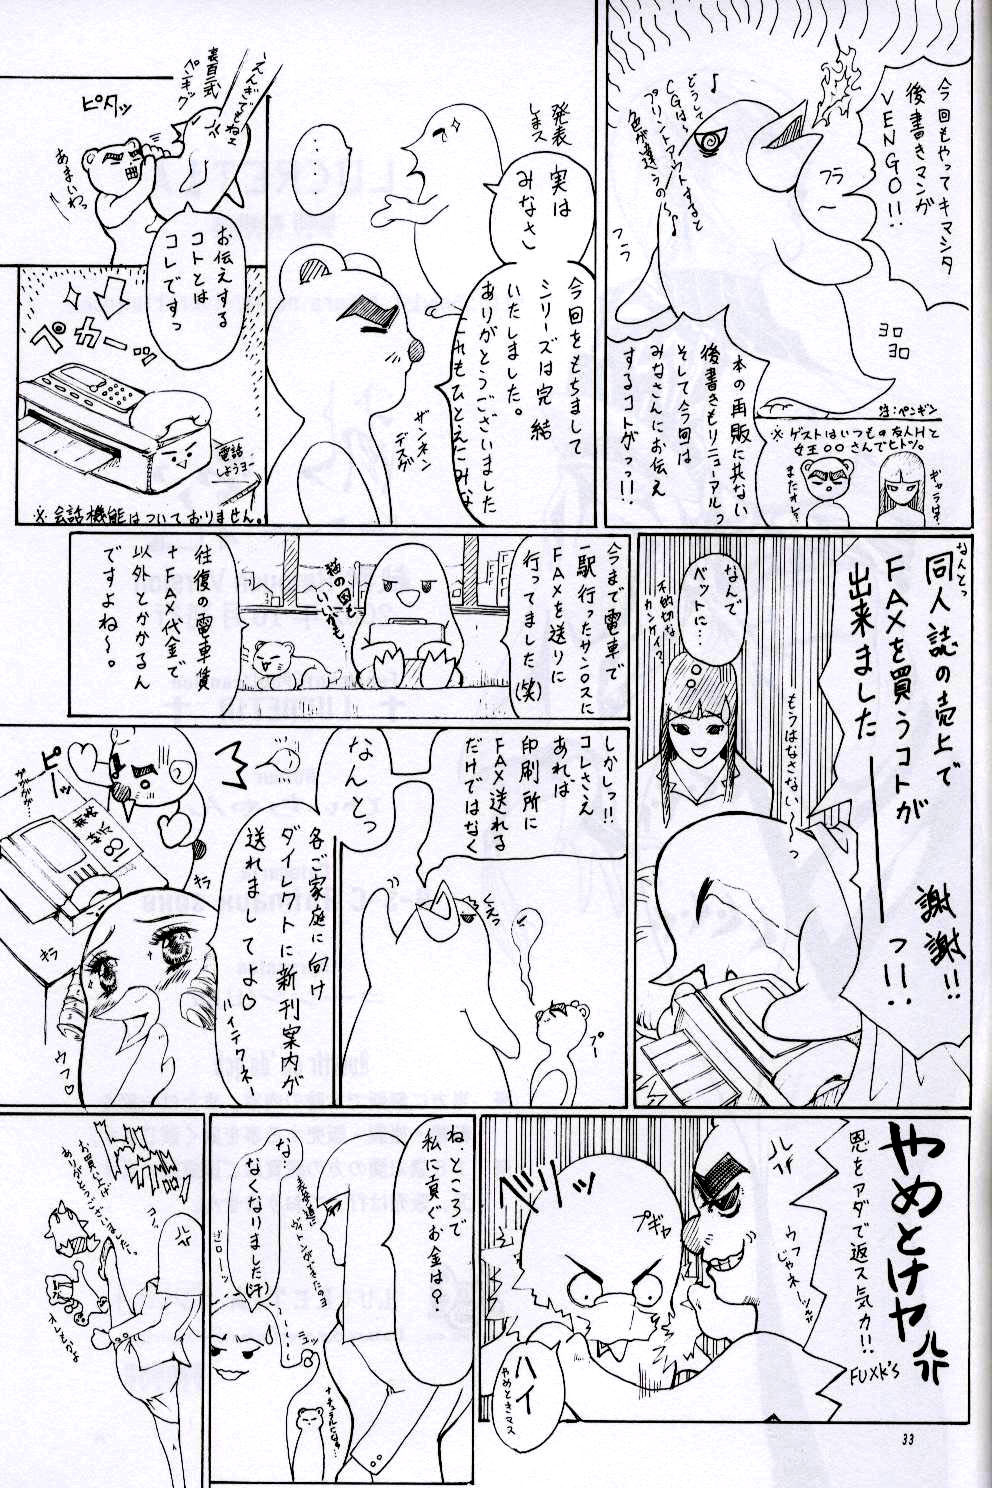 今回もやってキマシタ
後書きマンガ
VENGO!!
どうして
CGは〜
プリントアウトすると
色が違うの〜♪
フラ〜
フラ
ヨロ
ヨロ
注:ペンギン
本の再販に共ない
後書きもリニューアルっ
そして今回は
みなさんにお伝え
するコトがっっ!!
※ゲストはいつもの友人Hと
女王○○さんでヒトツ。
ギャラは?
またオレ?
発表
しまス
実は
みなさん
今回をもちまして
シリーズは完結
いたしました。
ありがとうございました
これもひとえにみな
‥‥
ザンネン
デスゲ
えんぎでもねェ
ピタッ
あまいわっ
お伝えする
コトとは
コレですっ
ペカーッ
電話
しようヨー
※会話機能はついておりません。
なんとっ
同人誌の売上で
FAXを買うコトが
出来ました――っ!!
謝謝!!
もうはなさない〜っ
なんで
ベットに…
不適切な
カンケイ?
今まで電車で
一駅行ったサンロスに
FAXを送りに
行ってました(笑)
猫の図も
いいかも…
往復の電車賃
+FAX代金で
以外とかかるん
ですよね〜。
しかしっ!!
コレさえ
あれは
印刷所に
FAX送れる
だけではなく
くるっ
プー
なんとっ
各ご家庭に向け
ダイレクトに新刊案内が
送れましてよ♡
ハイテクネー
ピーッ
18禁
キラ
キラ
ウフ♡
やめとけヤ
恩をアダで返ス気カ!!
FUXK'S
ウフじゃネー
バリッ
プギャ
ハイ
やめときマス
ね、ところで
私に貢ぐお金は?
な‥
なくなりました(汗)
ゴローン
ニュッ
ナチュラルになっ…
ドガガッ
お買い上げ
ありがとうございましたー。
オレもかよ
33